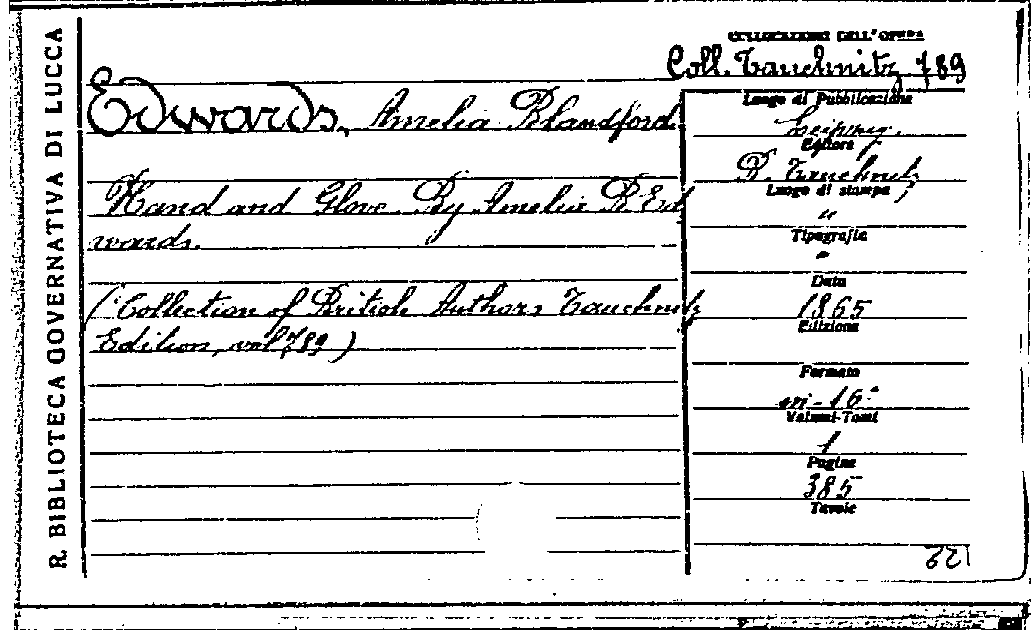 R. BIBLIOTECA GOVERNATIVA DI LUCCA
COLLOCAZIONE DELL'OPERA
Coll. Tauchnitz 789
Edwards, Amelia Blandford.
Hand and Glove. By Amelia B. Ed
wards.
("Collection of British Authors Tauchnitz
Edition, vol 789)
Luogo di Pubblicazione
Leipzig.
Editore
B. Tauchnitz
Luogo di stampa
"
Tipografia
"
Data
1865
Edizione
Formato
in-16°
Volumi-Tomi
1
Pagine
385
Tavole